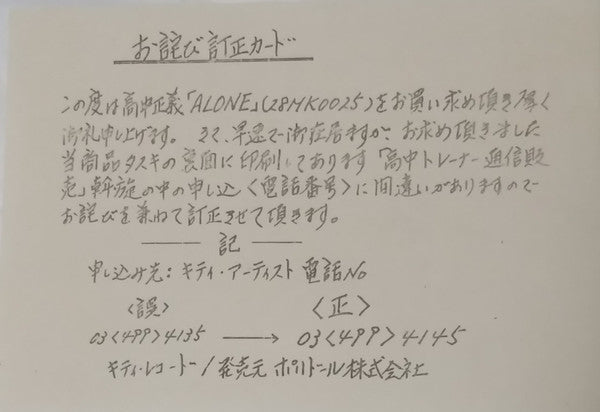 お詫び訂正カード
この度は高中正義「ALONE」(28MK0025)をお買い求め頂き厚く
御礼申し上げます。さて、早速で御座居ますが、お求め頂きました
当商品タスキの裏面に印刷してあります「高中トレーナー通信販
売」斡旋の中の申し込〈電話番号〉に間違いがありますので
お詫びを兼ねて訂正させて頂きます。
記
申し込み先:キティ・アーティスト 電話No
〈誤〉 〈正〉
03〈499〉4135 → 03〈499〉4145
キティ・レコード/発売元 ポリドール株式会社